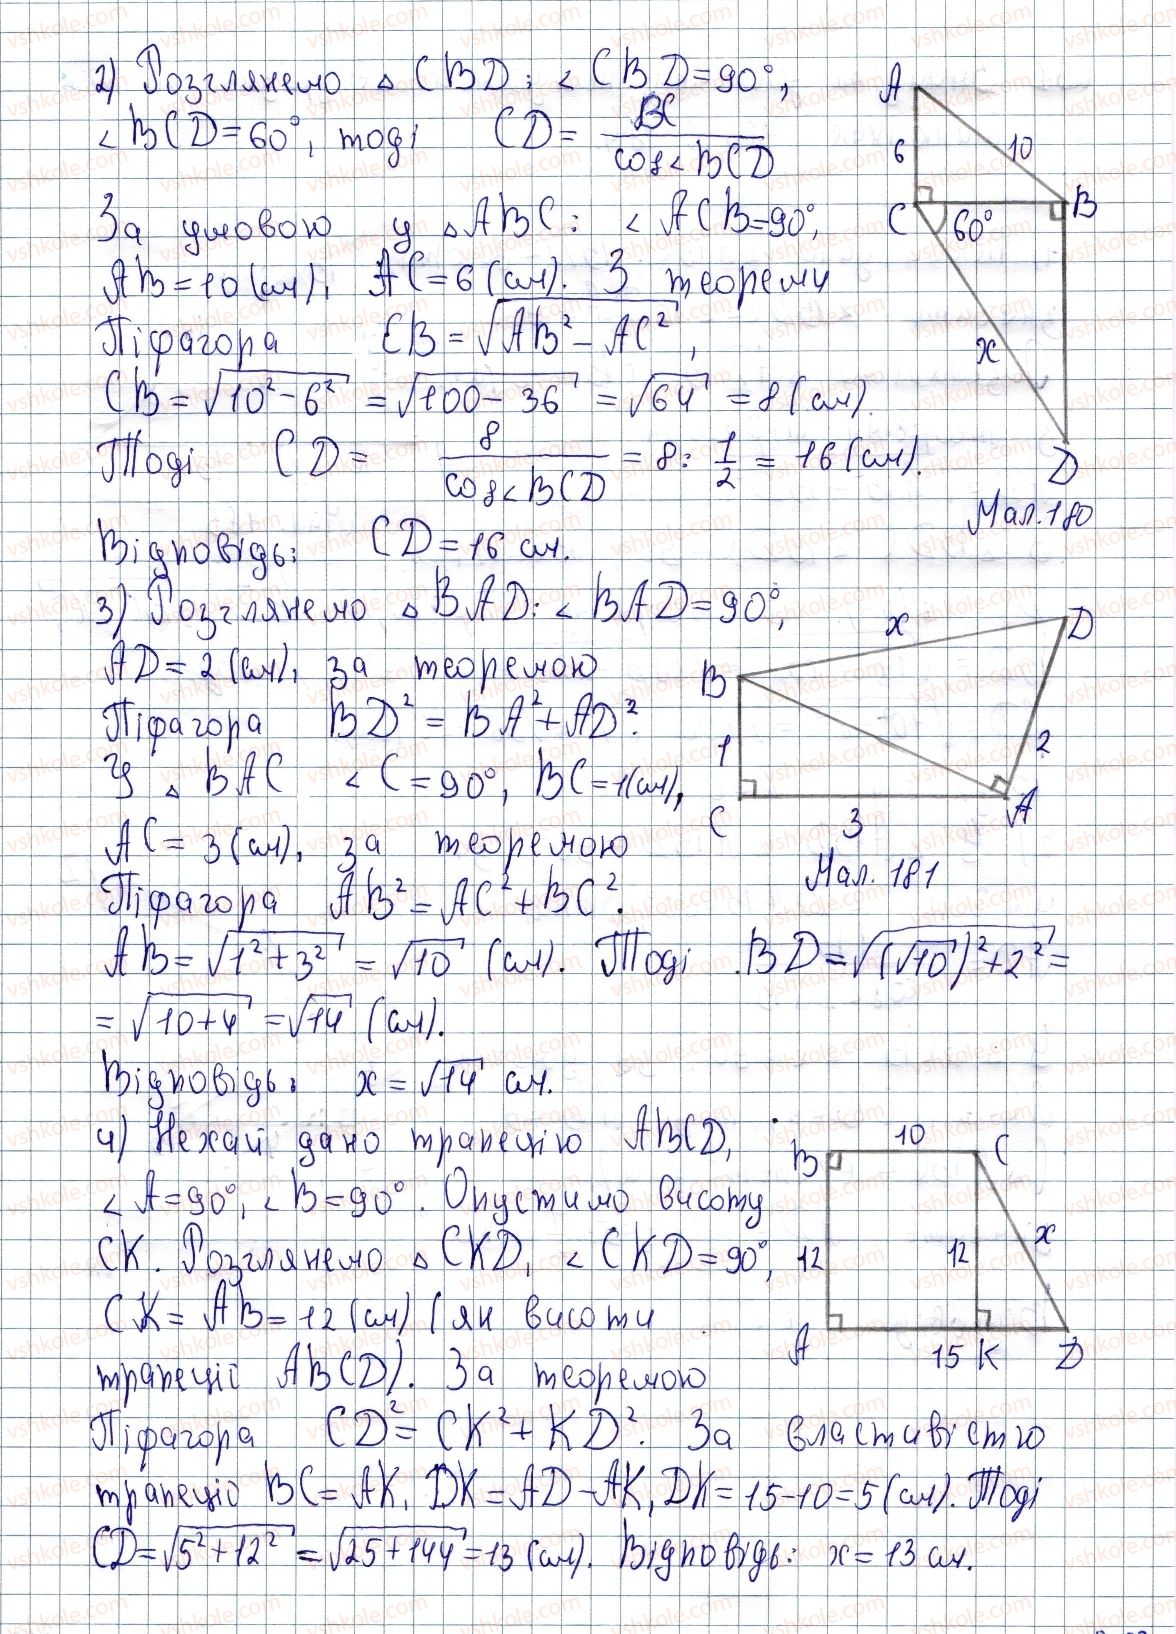 2) Розглянемо △ CBD: < CBD = 90°,
< BCD = 60°, тоді CD = BC / cos < BCD
За умовою у △ ABC: < ACB = 90°,
AB = 10 (см), AC = 6 (см). З теореми
Піфагора CB = √AB² − AC²,
CB = √10² − 6² = √100 − 36 = √64 = 8 (см).
Тоді CD = 8 / cos < BCD = 8 : 1/2 = 16 (см).
Відповідь: CD = 16 см.
A
6
10
C
60°
B
x
D
Мал. 180
3) Розглянемо △ BAD: < BAD = 90°,
AD = 2 (см), за теоремою
Піфагора BD² = BA² + AD².
У △ BAC < C = 90°, BC = 1 (см),
AC = 3 (см), за теоремою
Піфагора AB² = AC² + BC².
AB = √1² + 3² = √10 (см). Тоді BD = √(√10)² + 2² =
= √10 + 4 = √14 (см).
Відповідь: x = √14 см.
x
D
B
1
2
C
3
A
Мал. 181
4) Нехай дано трапецію ABCD,
< A = 90°, < B = 90°. Опустимо висоту
CK. Розглянемо △ CKD, < CKD = 90°,
CK = AB = 12 (см) (як висоти
трапеції ABCD). За теоремою
Піфагора CD² = CK² + KD². За властивістю
трапеції BC = AK, DK = AD − AK, DK = 15 − 10 = 5 (см). Тоді
CD = √5² + 12² = √25 + 144 = 13 (см). Відповідь: x = 13 см.
B
10
C
12
12
x
A
15
K
D